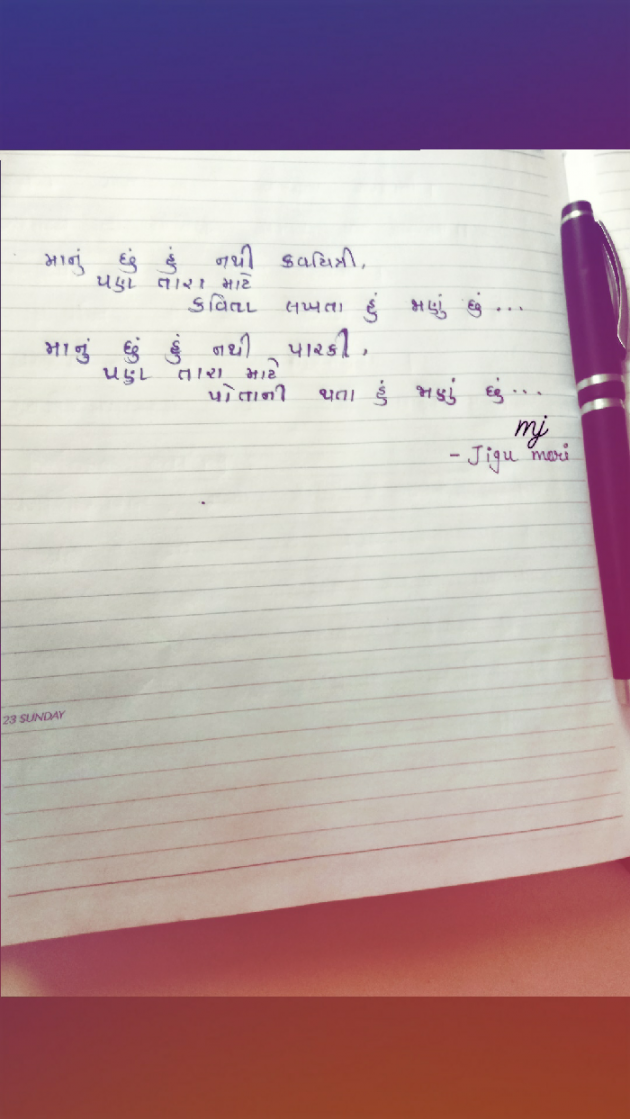 માનું છું હું નથી કવયિત્રી,
પણ તારા માટે
કવિતા લખતા હું જાણું છું...
માનું છું હું નથી પારકી,
પણ તારા માટે
પોતાની થતા હું જાણું છું...
mj
- Jigu mari
23 SUNDAY